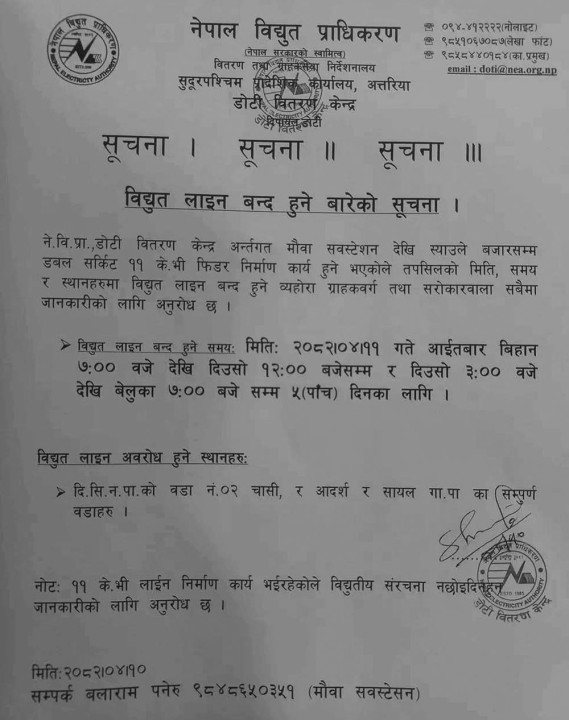 नेपाल विद्युत प्राधिकरण
(नेपाल सरकारको स्वामित्व)
वितरण तथा ग्राहकसेवा निर्देशनालय
सुदूरपश्चिम प्रादेशिक कार्यालय, अत्तरिया
डोटी वितरण केन्द्र
दिपायल,डोटी
☏ ०९४.४१२२२२(नोलाइट)
☏ ९८५१०६७०८७(लेखा फांट)
☏ ९८५८४४०१८४(का.प्रमुख)
email : doti@nea.org.np
नेपाल विद्युत प्राधिकरण
NEPAL ELECTRICITY AUTHORITY
सूचना । सूचना ॥ सूचना ॥।
विद्युत लाइन बन्द हुने बारेको सूचना ।
ने.वि.प्रा.,डोटी वितरण केन्द्र अर्न्तगत मौवा सवस्टेशन देखि स्याउले बजारसम्म
डबल सर्किट ११ के.भी फिडर निर्माण कार्य हुने भएकोले तपसिलको मिति, समय
र स्थानहरुमा विद्युत लाइन बन्द हुने व्यहोरा ग्राहकवर्ग तथा सरोकारवाला सबैमा
जानकारीको लागि अनुरोध छ ।
➢ विद्युत लाइन बन्द हुने समय: मिति: २०८२|०४|११ गते आईतबार बिहान
७:०० वजे देखि दिउसो १२:०० बजेसम्म र दिउसो ३:०० वजे
देखि बेलुका ७:०० बजे सम्म ५(पाँच) दिनका लागि ।
विद्युत लाइन अवरोध हुने स्थानहरु:
➢ दि.सि.न.पा.को वडा नं.०२ चासी, र आदर्श र सायल गा.पा का सम्पुर्ण
वडाहरु ।
नेपाल विद्युत प्राधिकरण
NEPAL ELECTRICITY AUTHORITY
डोटी वितरण केन्द्र
नोट: ११ के.भी लाईन निर्माण कार्य भईरहेकोले विद्युतीय संरचना नछोइदिनहुन
जानकारीको लागि अनुरोध छ ।
मिति:२०८२|०४|१०
सम्पर्क बलाराम पनेरु ९८४८६५०३५१ (मौवा सवस्टेसन)